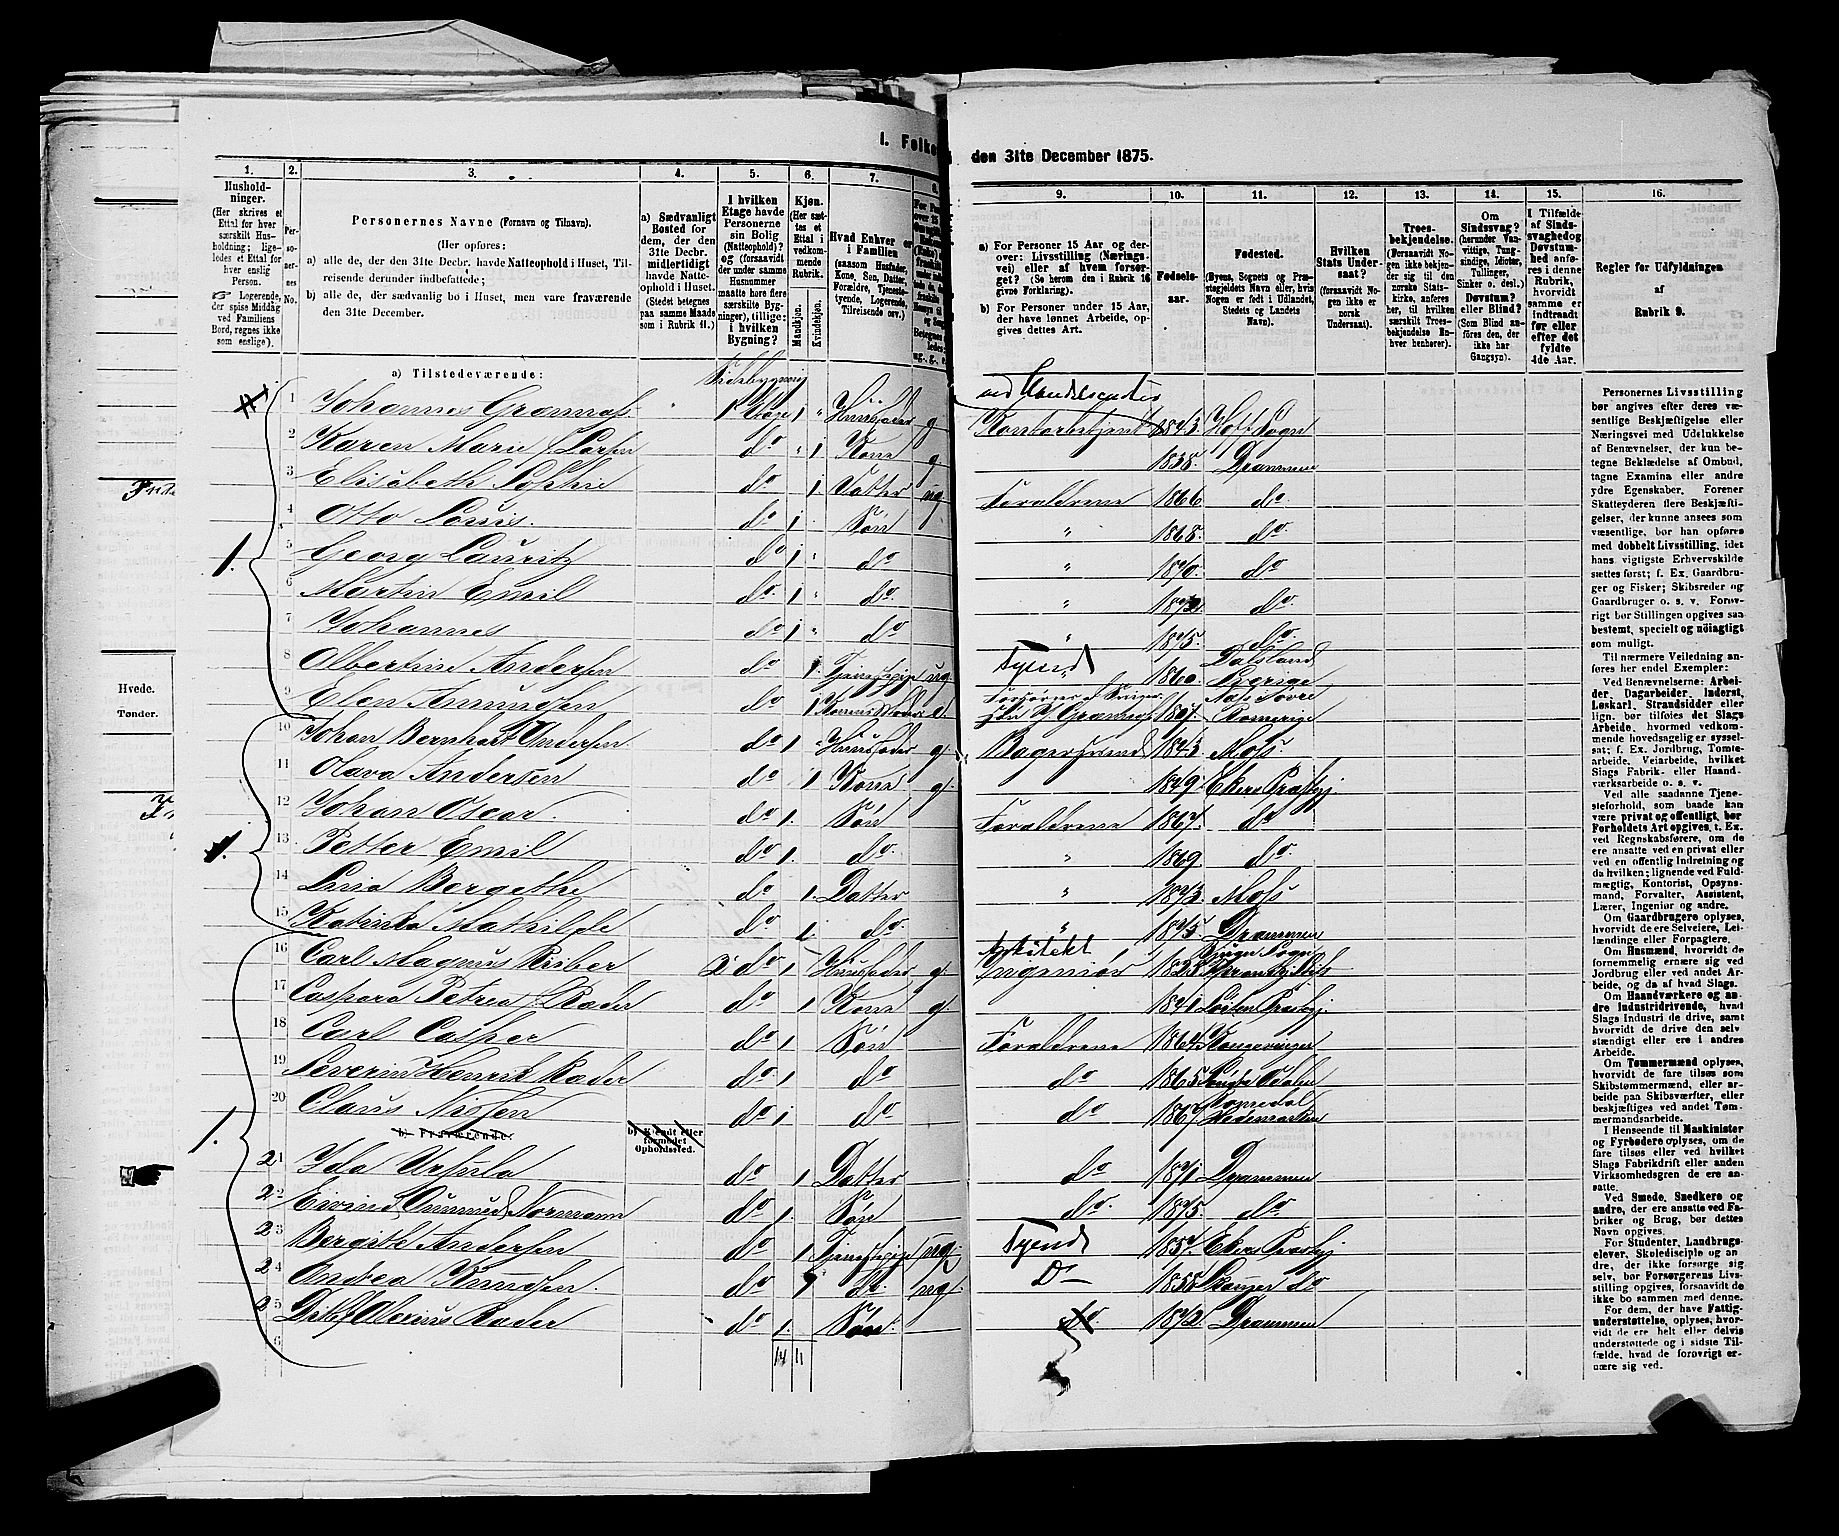 I. Folke
den 31te December 1875.
1. 2. 3. 4. 5. 6. 7. 8.
9. 10. 11. 12. 13. 14. 15. 16.
Husholdninger.
(Her skrives et Ettal for hver særskilt Husholdning; ligeledes et Ettal for hver enslig Person.
Logerende, der spise Middag ved Familiens Bord, regnes ikke som enslige).
Personernes No.
Personernes Navne (Fornavn og Tilnavn).
(Her opføres:
a) alle de, der den 31te Decbr. havde Natteophold i Huset, Tilreisende derunder indbefattede;
b) alle de, der sædvanlig bo i Huset, men vare fraværende den 31te December.
a) Sædvanligt Bosted for dem, der den 31te Decbr. midlertidigt havde Natteophold i Huset.
(Stedet betegnes paa samme Maade som i Rubrik 11.)
I hvilken Etage havde Personerne sin Bolig (Natteophold)? og (forsaavidt der under samme Husnummer maatte høre flere særskilte Bygninger), tillige: i hvilken Bygning?
Kjøn.
(Her sættes et Ettal i vedkommende Rubrik.
Mandkjøn. Kvindekjøn.
Hvad Enhver er i Familien
(saasom Husfader, Kone, Søn, Datter, Forældre, Tjenestetyende, Logerende, Tilreisende osv.)
a) For Personer 15 Aar og derover: Livsstilling (Næringsvei) eller af hvem forsørget? (Se herom den i Rubrik 16 givne Forklaring).
b) For Personer under 15 Aar, der have lønnet Arbeide, opgives dettes Art.
Fødselsaar.
Fødested.
(Byens, Sognets og Præstegjeldets Navn eller, hvis Nogen er født i Udlandet, Stedets og Landets Navn).
Hvilken Stats Undersaat?
(forsaavidt Nogen ikke er norsk Undersaat).
Troesbekjendelse.
(Forsaavidt Nogen ikke bekjender sig til den norske Statskirke, anføres her, til hvilken særskilt Troesbekjendelse Enhver henhører).
Om Sindssvag?
(herunder Vanvittige, Tungsindige, Idioter, Tullinger, Sinker o. desl.)
Døvstum? eller Blind?
(Som Blind anføres den, der ikke har Gangsyn).
I Tilfælde af Sindssvaghed og Døvstumhed anføres i denne Rubrik, hvorvidt samme er indtraadt før eller efter det fyldte 4de Aar.
Regler for Udfyldningen
af
Rubrik 9.
a) Tilstedeværende:
Sidebygning
ved Handelscontor
1 Johannes Grønnæss " 1 Etage 1 " Huusfader g Kontorbetjent 1843. Hoff Sogn
2 Karen Marie f. Larsen do " 1 Kone g 1838. Drammen
3 Elisabeth Sophie do 1. Datter ug Foræeldrene 1866 do
4 Otto Louis. do 1 Søn " 1868. do
5 Georg Lauritz do 1 " do " 1870. do
6 Martin Emil do. 1 " do. " 1872. do.
7 Johannes do 1 " do " 1875. do.
8 Albertine Andersen do 1. Tjenestepige ug. Tyend 1860. Dalsland Sverige
9 Elen Amundsen do 1 Konens Moder e. 1807.
10 Johan Bernhart Andersen do 1 Huusfader g. Bagersvend 1843. Moss
11 Olava Andersen do 1 Kone g. 1849. Eker Præstgj
12 Johan Oscar. do 1. Søn Forældrene 1867. do
13 Petter Emil do 1. do. " 1869 do.
14 Lina Bergethe do 1. Datter " 1873. Moss
15 Katinka Mathilde do 1. do. " 1875. Drammen
16 Carl Magnus Riber 2 do 1 Huusfader g. Arkitekt Ingeniør
17 Caspara Petrea f. Ræder do 1 Kone g. 1841 Løiten Præstgj.
18 Carl Casper do 1. Søn Forældrene 1864. Kongsvinger
19 Severin Henrik Ræder do. 1 do do 1865 Søndre Odalen
20 Claus Nissen do 1 do do 1867 Romedal Hedemarken
b) Fraværende:
b) Kjendt eller formodet Opholdssted.
21 Ida Ursula do 1 Datter do 1871. Drammen
22 Eivind Normann do 1. Søn do. 1875. do
23 Bergith Andersen do 1 Tjenestepige ug. Tyend 1857. Eker Præstgj
24 Andrea Knudsen. do do. ug. Do 1855 do
25 Ræder do 1. Søn. do 1872. Drammen
6
14 11
Hvede.
Tønder.
Personernes Livsstilling bør angives efter deres væsentlige Beskjæftigelse eller Næringsvei med Udelukkelse af Benævnelser, der kun betegne Beklædelse af Ombud, tagne Examina eller andre ydre Egenskaber. Forener Skatteyderen flere Beskjæftigelser, der kunne ansees som væsentlige, bør han opføres med dobbelt Livsstilling, idet hans vigtigste Erhvervskilde sættes først; f. Ex. Gaardbruger og Fisker; Skibsreder og Gaardbruger o. s. v. Forøvrigt bør Stillingen opgives saa bestemt, specielt og nøiagtigt som muligt.
Til nærmere Veiledning anføres her endel Exempler:
Ved Benævnelserne: Arbeider, Dagarbeider, Inderst, Løskarl, Strandsidder eller lign. bør tilføies det Slags Arbeide, hvormed vedkommende hovedsagelig er sysselsat; f. Ex. Jordbrug, Tomtearbeide, Veiarbeide, hvilket Slags Fabrik- eller Haandværksarbeide o. s. v.
Ved alle saadanne Tjenesteforhold, som baade kan være privat og offentligt, bør Forholdets Art opgives, t. Ex. ved Regnskabsførere, om de ere ansatte ved en privat eller ved en offentlig Indretning og da hvilken; lignende ved Fuldmægtig, Kontorist, Opsynsmand, Forvalter, Assistent, Lærer, Ingeniør og andre.
Om Gaardbrugere oplyses, hvorvidt de ere Selveiere, Leilændinge eller Forpagtere.
Om Husmænd, hvorvidt de fornemmelig ernære sig ved Jordbrug eller ved andet Arbeide, og da af hvad Slags.
Om Haandværkere og andre Industridrivende, hvad Slags Industri de drive, samt hvorvidt de drive den selvstændigt eller ere i andres Arbeide.
Om Tømmermænd oplyses, hvorvidt de fare tilsøs som Skibstømmermænd, eller arbeide paa Skibsværfter, eller beskjæftiges ved andet Tømmermandsarbeide.
I Henseende til Maskinister og Fyrbødere oplyses, om de fare tilsøs eller ved hvilket Slags Fabrikdrift eller anden Virksomhedsgren de ere ansatte.
Ved Smede, Snedkere og andre, der ere ansatte ved Fabriker og Brug, bør dettes Navn opgives.
For Studenter, Landbrugselever, Skoledisciple og andre, der ikke forsørge sig selv, bør Forsørgerens Livsstilling opgives, forsaavidt de ikke bo sammen med denne.
For dem, der have Fattigunderstøttelse, oplyses, hvorvidt de ere helt eller delvis understøttede og i sidste Tilfælde, hvad de forøvrigt ernære sig ved.